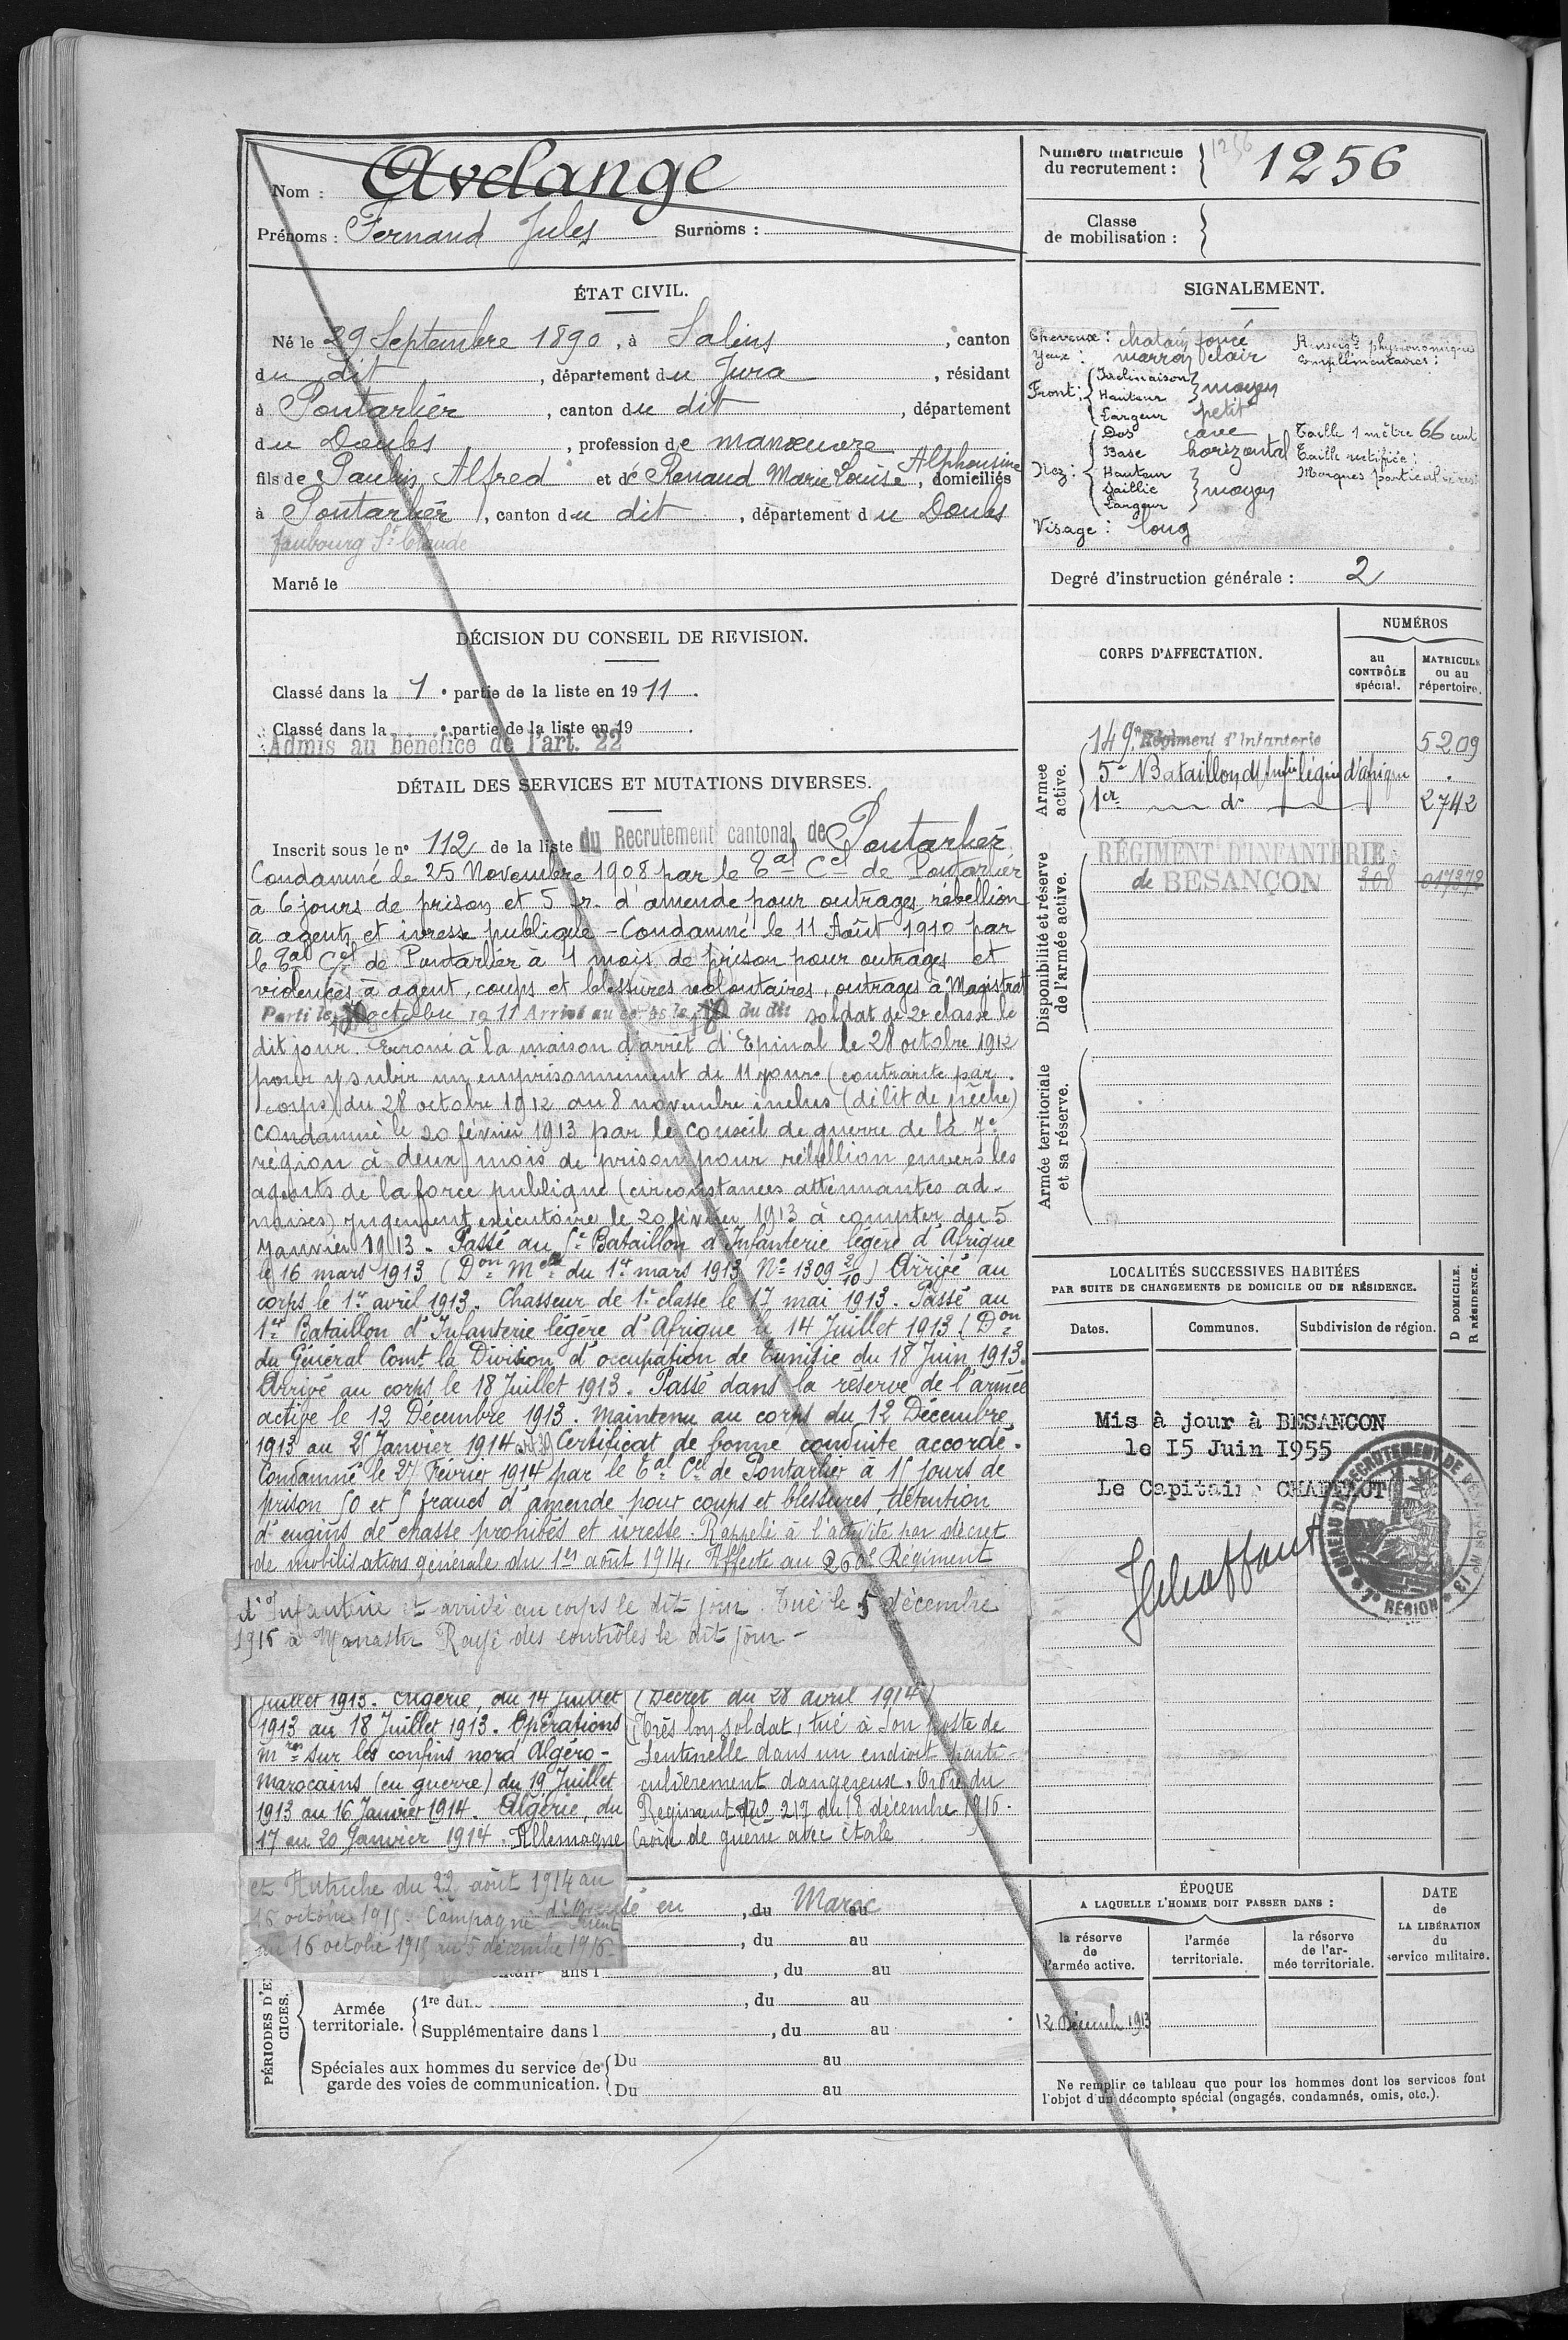 Nom : Avelange
Prénoms : Fernand Jules Surnoms :
Numéro matricule du recrutement : 1256 1256
Classe de mobilisation :
ÉTAT CIVIL.
Né le 29 Septembre 1890, à Salins, canton
du dit, département du Jura, résidant
à Pontarlier, canton du dit, département
du Doubs, profession de manœuvre
fils de Paulin Alfred et de Renaud Marie Louise Alphonsine, domiciliés
à Pontarlier, canton du dit, département du Doubs
faubourg St Claude
Marié le
SIGNALEMENT.
Cheveux : chatain foncé
Yeux : marron clair
Front : Inclinaison
Hauteur } moyen
Largeur petit
Nez : Dos cave
Base horizontal
Hauteur
Saillie } moyen
Largeur
Visage : long
Renseigts physionomiques
complémentaires :
Taille 1 mètre 66 cent
Taille rectifiée :
Marques particulières :
Degré d'instruction générale : 2
DÉCISION DU CONSEIL DE REVISION.
Classé dans la 1e partie de la liste en 1911.
Classé dans la e partie de la liste en 19 .
Admis au bénéfice de l'art. 22
DÉTAIL DES SERVICES ET MUTATIONS DIVERSES.
Inscrit sous le n° 112 de la liste du Recrutement cantonal de Pontarlier
Condamné le 25 Novembre 1908 par le Tal Cel de Pontarlier
à 6 jours de prison et 5 fr. d'amende pour outrages, rébellion
à agents et ivresse publique - Condamné le 11 Août 1910 par
le Tal Cel de Pontarlier à 1 mois de prison pour outrages et
violences à agent, coups et blessures volontaires, outrages à Magistrat
Parti le 10 octobre 1911 Arrivé au corps le 10 du dit soldat de 2e classe le
dit jour. Ecroué à la maison d'arrêt d'Epinal le 28 octobre 1912
pour y subir un emprisonnement de 11 jours (contrainte par
corps) du 28 octobre 1912 au 8 novembre inclus (délit de pêche)
Condamné le 20 février 1913 par le Conseil de guerre de la 7e
région à deux mois de prison pour rébellion envers les
agents de la force publique (circonstances atténuantes ad-
mises) jugement exécutoire le 20 février 1913 à compter du 5
janvier 1913. Passé au 5e Bataillon d'Infanterie légère d'Afrique
le 16 mars 1913 (Don Melle du 1er mars 1913 No 1309 2/10) Arrivé au
corps le 1er avril 1913. Chasseur de 1e classe le 17 mai 1913. Passé au
1er Bataillon d'Infanterie légère d'Afrique le 14 Juillet 1913 (Don
du Général Comt la Division d'occupation de Tunisie du 18 Juin 1913.
Arrivé au corps le 18 Juillet 1913. Passé dans la réserve de l'armée
active le 12 Décembre 1913. Maintenu au corps du 12 Décembre
1913 au 25 Janvier 1914 Certificat de bonne conduite accordé.
Condamné le 27 Février 1914 par le Tal Cel de Pontarlier à 15 jours de
prison 50 et 5 francs d'amende pour coups et blessures, détention
d'engins de chasse prohibés et ivresse. Rappelé à l'activité par décret
de mobilisation générale du 1er août 1914. Affecté au 260e Régiment
d'Infanterie et arrivé au corps le dit jour. Tué le 5 décembre
1916 à Monastir Rayé des contrôles le dit jour -
Juillet 1913. Algérie, du 14 Juillet
1913 au 18 Juillet 1913. Opérations
mres sur les confins nord Algéro-
Marocains (en guerre) du 19 Juillet
1913 au 16 Janvier 1914. Algérie, du
17 au 20 Janvier 1914. Allemagne
et Autriche du 22 août 1914 au
15 octobre 1915. Campagne d'Orient
du 16 octobre 1915 au 5 décembre 1916.
(Décret du 28 avril 1914)
Très bon soldat, tué à son poste de
sentinelle dans un endroit parti-
culièrement dangereux. Ordre du
Régiment No 217 du 18 décembre 1916.
Croix de guerre avec étoile
en , du Maroc au
, du au
dans l , du au
PÉRIODES D'E
CICES.
Armée territoriale.
1re dans , du au
Supplémentaire dans l , du au
Spéciales aux hommes du service de garde des voies de communication.
Du au
Du au
CORPS D'AFFECTATION.
NUMÉROS
au CONTRÔLE spécial.
MATRICULE ou au répertoire.
Armée active.
149e Régiment d'Infanterie 5209
5e Bataillon d'Infie légère d'afrique
1er d° 2742
Disponibilité et réserve de l'armée active.
RÉGIMENT D'INFANTERIE
de BESANÇON 308 017372
Armée territoriale et sa réserve.
LOCALITÉS SUCCESSIVES HABITÉES
PAR SUITE DE CHANGEMENTS DE DOMICILE OU DE RÉSIDENCE.
Dates. Communes. Subdivision de région.
D DOMICILE.
R RÉSIDENCE.
Mis à jour à BESANCON
le 15 Juin 1955
Le Capitaine
BUREAU DE RECRUTEMENT DE
7e RÉGION
ÉPOQUE
A LAQUELLE L'HOMME DOIT PASSER DANS :
la réserve de l'armée active.
l'armée territoriale.
la réserve de l'armée territoriale.
DATE de LA LIBÉRATION du service militaire.
12 Décemb 1913
Ne remplir ce tableau que pour les hommes dont les services font
l'objet d'un décompte spécial (engagés, condamnés, omis, etc.).